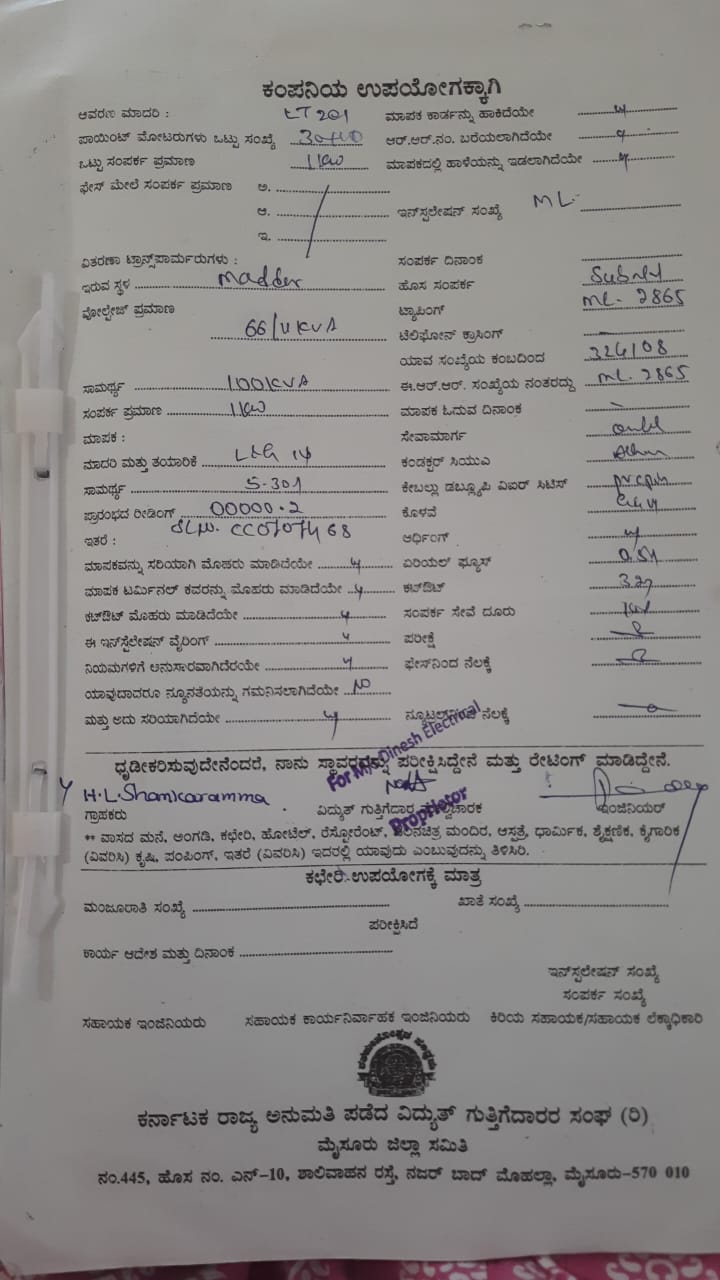 ಕಂಪನಿಯ ಉಪಯೋಗಕ್ಕಾಗಿ
ಆವರಣ ಮಾದರಿ : LT201 ಮಾಪಕ ಕಾರ್ಡನ್ನು ಹಾಕಿದೆಯೇ
ಪಾಯಿಂಟ್ ಮೋಟರುಗಳು ಒಟ್ಟು ಸಂಖ್ಯೆ ಆರ್.ಆರ್.ನಂ. ಬರೆಯಲಾಗಿದೆಯೇ
ಒಟ್ಟು ಸಂಪರ್ಕ ಪ್ರಮಾಣ 1kw ಮಾಪಕದಲ್ಲಿ ಹಾಳೆಯನ್ನು ಇಡಲಾಗಿದೆಯೇ
ಫೇಸ್ ಮೇಲೆ ಸಂಪರ್ಕ ಪ್ರಮಾಣ ಅ.
ಆ. ಇನ್‌ಸ್ಟಲೇಷನ್ ಸಂಖ್ಯೆ ML-
ಇ.
ವಿತರಣಾ ಟ್ರಾನ್ಸ್‌ಫಾರ್ಮರುಗಳು : ಸಂಪರ್ಕ ದಿನಾಂಕ
ಇರುವ ಸ್ಥಳ Madder ಹೊಸ ಸಂಪರ್ಕ
ವೋಲ್ಟೇಜ್ ಪ್ರಮಾಣ ಟ್ಯಾಪಿಂಗ್ ML- 2865
66/11KVA ಟೆಲಿಫೋನ್ ಕ್ರಾಸಿಂಗ್
ಯಾವ ಸಂಖ್ಯೆಯ ಕಂಬದಿಂದ 324/08
ಸಾಮರ್ಥ್ಯ 100KVA ಈ.ಆರ್.ಆರ್. ಸಂಖ್ಯೆಯ ನಂತರದ್ದು ML. 2865
ಸಂಪರ್ಕ ಪ್ರಮಾಣ 1kw ಮಾಪಕ ಓದುವ ದಿನಾಂಕ
ಮಾಪಕ : ಸೇವಾಮಾರ್ಗ
ಮಾದರಿ ಮತ್ತು ತಯಾರಿಕೆ ಕಂಡಕ್ಟರ್ ಸಿಯುಎ
ಸಾಮರ್ಥ್ಯ 5-30A ಕೇಬಲ್ಲು ಡಬ್ಲ್ಯೂಪಿ ವಿಐರ್ ಸಿಟಿಸ್
ಪ್ರಾರಂಭದ ರೀಡಿಂಗ್ 00000.2 ಕೊಳವೆ
ಇತರೆ : Sl.No. CC0707468 ಆರ್ಥಿಂಗ್
ಮಾಪಕವನ್ನು ಸರಿಯಾಗಿ ಮೊಹರು ಮಾಡಿದೆಯೇ ಏರಿಯಲ್ ಫ್ಯೂಸ್
ಮಾಪಕ ಟರ್ಮಿನಲ್ ಕವರನ್ನು ಮೊಹರು ಮಾಡಿದೆಯೇ ಕಟ್‌ಔಟ್
ಕಟ್‌ಔಟ್ ಮೊಹರು ಮಾಡಿದೆಯೇ ಸಂಪರ್ಕ ಸೇವೆ ದೂರು
ಈ ಇನ್‌ಸ್ಟೆಲೇಷನ್ ವೈರಿಂಗ್ ಪರೀಕ್ಷೆ
ನಿಯಮಗಳಿಗೆ ಅನುಸಾರವಾಗಿದೆರೆಯೇ ಫೇಸ್‌ನಿಂದ ನೆಲಕ್ಕೆ
ಯಾವುದಾದರೂ ನ್ಯೂನತೆಯನ್ನು ಗಮನಿಸಲಾಗಿದೆಯೇ NO
ಮತ್ತು ಅದು ಸರಿಯಾಗಿದೆಯೇ ನೆಲಕ್ಕೆ
ಧೃಡೀಕರಿಸುವುದೇನೆಂದರೆ, ನಾನು ಸ್ಥಾವರವನ್ನು ಪರೀಕ್ಷಿಸಿದ್ದೇನೆ ಮತ್ತು ರೇಟಿಂಗ್ ಮಾಡಿದ್ದೇನೆ.
For M/s Dinesh Electrical
Proprietor
H.L.Shankaramma
ಗ್ರಾಹಕರು ವಿದ್ಯುತ್ ಗುತ್ತಿಗೆದಾರ ಇಂಜಿನಿಯರ್
** ವಾಸದ ಮನೆ, ಅಂಗಡಿ, ಕಛೇರಿ, ಹೋಟೆಲ್, ರೆಸ್ಟೋರೆಂಟ್, ಚಲನಚಿತ್ರ ಮಂದಿರ, ಆಸ್ಪತ್ರೆ, ಧಾರ್ಮಿಕ, ಶೈಕ್ಷಣಿಕ, ಕೈಗಾರಿಕೆ
(ವಿವರಿಸಿ) ಕೃಷಿ, ಪಂಪಿಂಗ್, ಇತರೆ (ವಿವರಿಸಿ) ಇದರಲ್ಲಿ ಯಾವುದು ಎಂಬುವುದನ್ನು ತಿಳಿಸಿರಿ.
ಕಛೇರಿ ಉಪಯೋಗಕ್ಕೆ ಮಾತ್ರ
ಮಂಜೂರಾತಿ ಸಂಖ್ಯೆ ಖಾತೆ ಸಂಖ್ಯೆ
ಪರೀಕ್ಷಿಸಿದೆ
ಕಾರ್ಯ ಆದೇಶ ಮತ್ತು ದಿನಾಂಕ
ಇನ್‌ಸ್ಟಲೇಷನ್ ಸಂಖ್ಯೆ
ಸಂಪರ್ಕ ಸಂಖ್ಯೆ
ಸಹಾಯಕ ಇಂಜಿನಿಯರು ಸಹಾಯಕ ಕಾರ್ಯನಿರ್ವಾಹಕ ಇಂಜಿನಿಯರು ಕಿರಿಯ ಸಹಾಯಕ/ಸಹಾಯಕ ಲೆಕ್ಕಾಧಿಕಾರಿ
ಕರ್ನಾಟಕ ರಾಜ್ಯ ಅನುಮತಿ ಪಡೆದ ವಿದ್ಯುತ್ ಗುತ್ತಿಗೆದಾರರ ಸಂಘ (ರಿ)
ಮೈಸೂರು ಜಿಲ್ಲಾ ಸಮಿತಿ
ನಂ.445, ಹೊಸ ನಂ. ಎನ್-10, ಶಾಲಿವಾಹನ ರಸ್ತೆ, ನಜರ್ ಬಾದ್ ಮೊಹಲ್ಲಾ, ಮೈಸೂರು-570 010